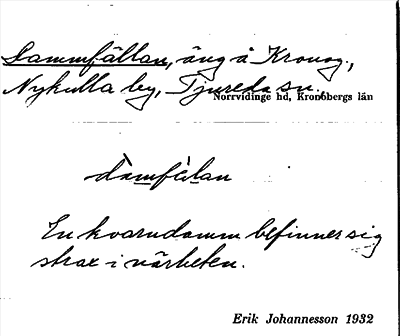 Dammfällan, äng å Kronog.,
Nykulla by, Tjureda sn.,
Norrvidinge hd, Kronobergs län
dàmfèlan
En kvarndamm befinner sig
strax i närheten.
Erik Johannesson 1932